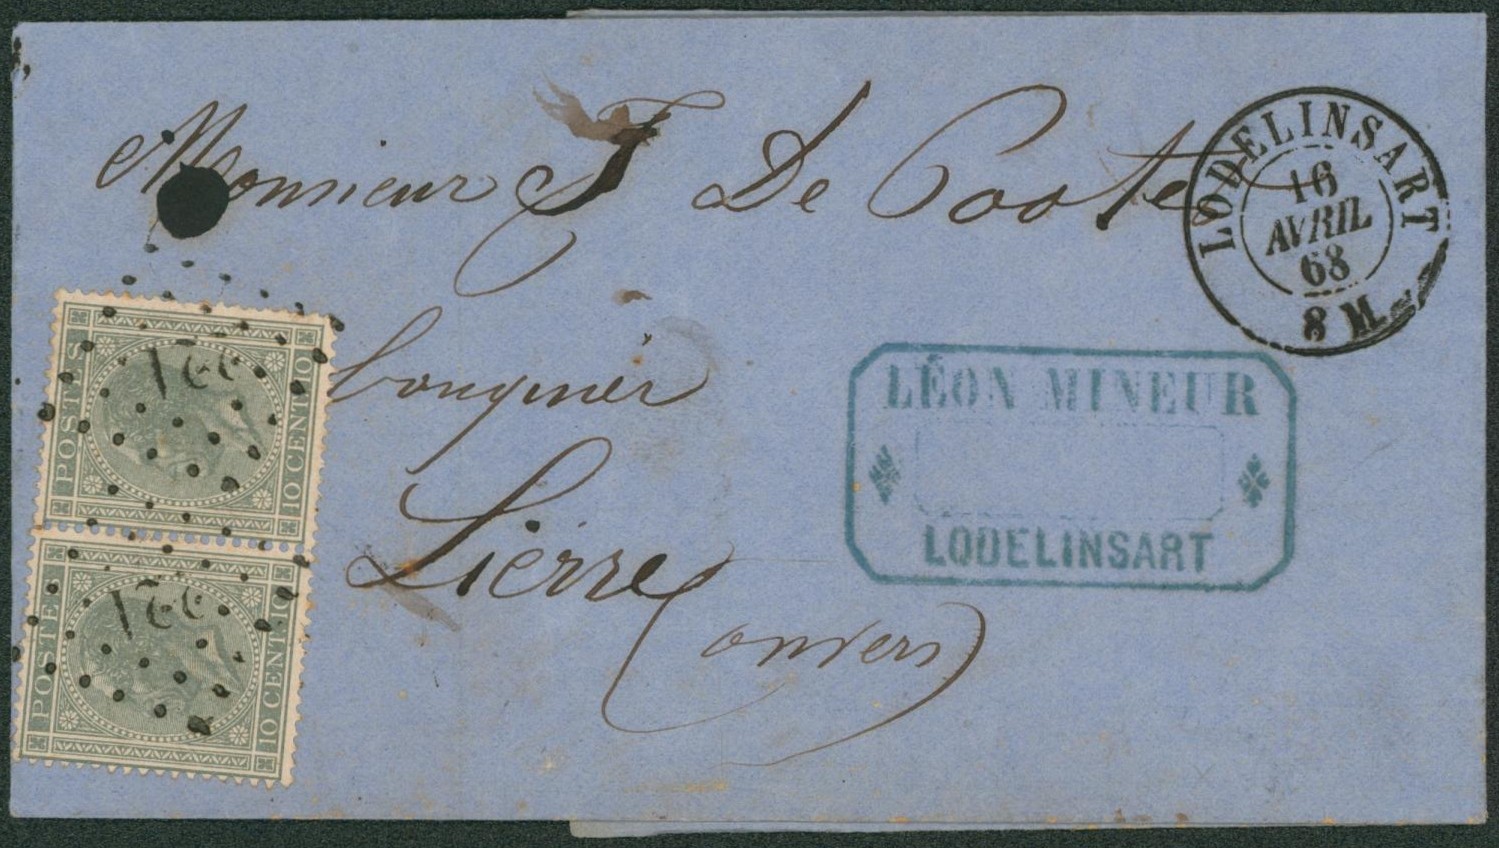 Monsieur J De Coster
banquier
Lierre
(anvers)
LODELINSART
16
AVRIL
68
8 M.
LÉON MINEUR
LODELINSART
POSTES
10 CENT. 10
221
POSTES
10 CENT. 10
221